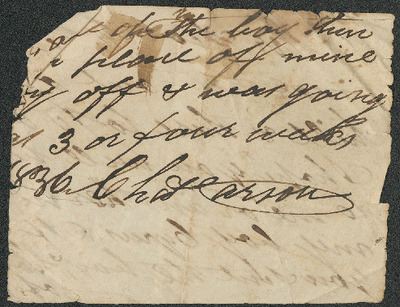 of the boy then
a place of mine
off & was going
as 3 or four weeks
1836 Chas Carson